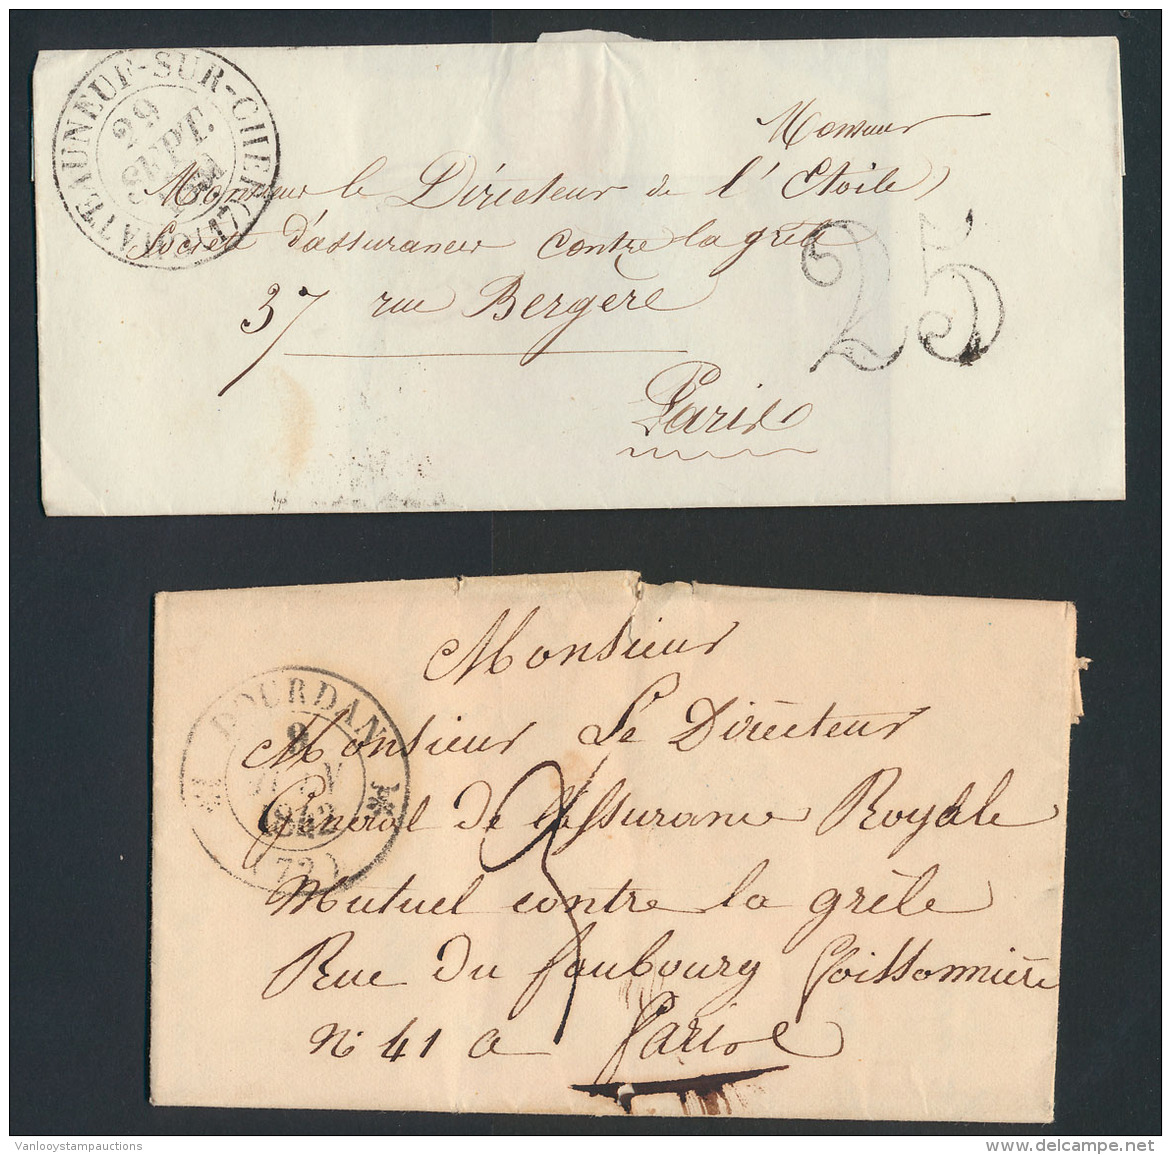 CHATEAUNEUF-SUR-CHER (17)
29
SEPT.
Monsieur
Monsieur le Directeur de l'Etoile
Société d'assurances contre la grêle
37 rue Bergère
25
Paris
DOURDAN
8
1842
(72)
Monsieur
Monsieur Le Directeur
Général de L'assurance Royale
Mutuel contre la grèle
Rue du faubourg Poissonnière
N° 41 a Paris
3
Vanlooystampauctions
delcampe.net